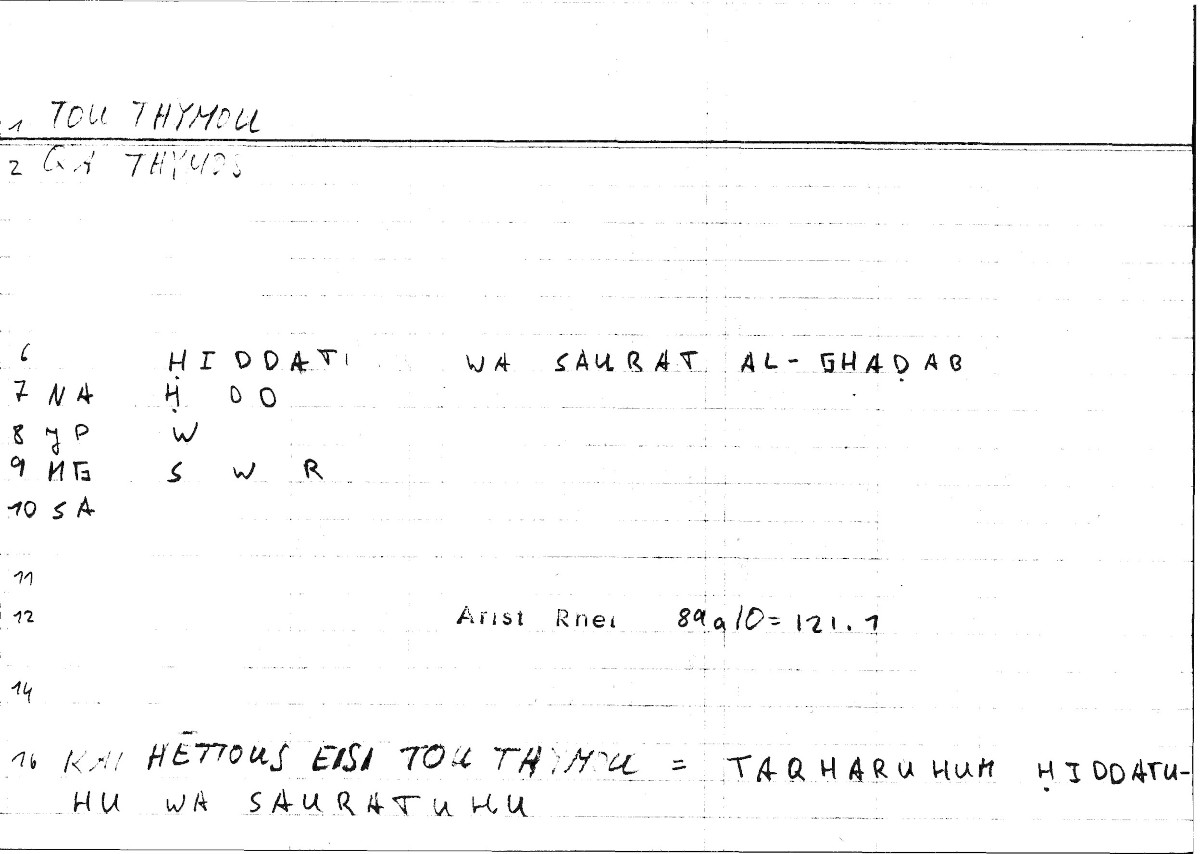 1 TOU THYMOU
2 GA THYMOS
6 ḤIDDATI WA SAURAT AL-GHAḌAB
7 NA Ḥ D D
8 YP W
9 NG S W R
10 SA
11
12 Arist Rhet 89a10=121.1
14
16 KAI HĒTTOUS EISI TOU THYMOU = TAQHARUHUM ḤIDDATU-
HU WA SAURATUHU